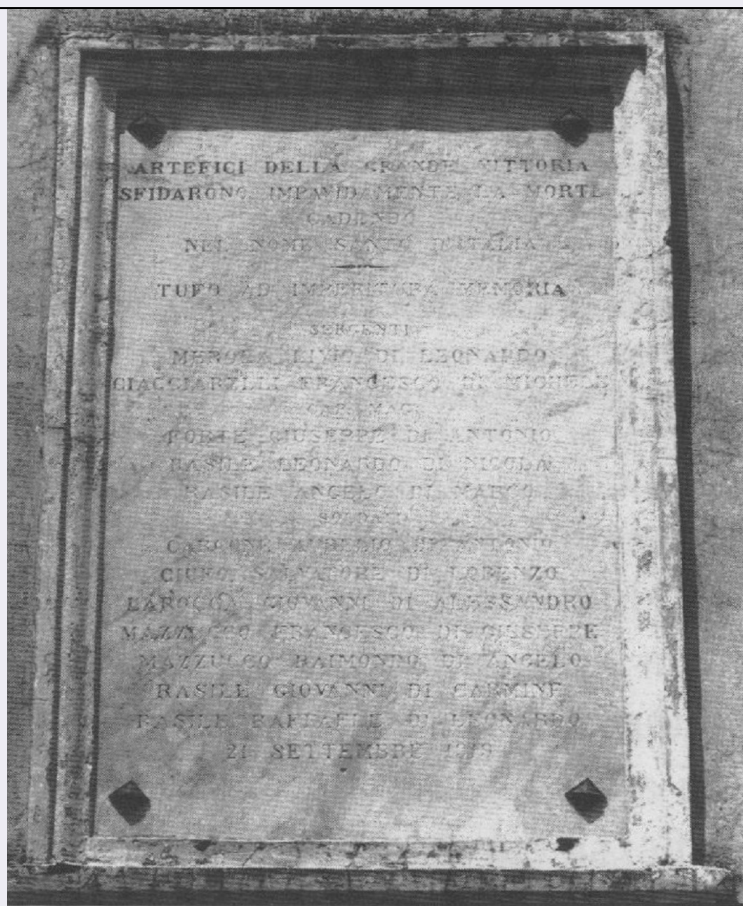 ARTEFICI DELLA GRANDE VITTORIA
SFIDARONO IMPAVIDAMENTE LA MORTE
CADENDO
NEL NOME SANTO D'ITALIA
TUFO AD IMPERITURA MEMORIA
SERGENTI
MEROLA LIVIO DI LEONARDO
CIACCIARELLI FRANCESCO DI MICHELE
CAP. MAG.
FORTE GIUSEPPE DI ANTONIO
RASILE LEONARDO DI NICOLA
RASILE ANGELO DI MARCO
SOLDATI
AURELIO DI ANTONIO
CIUFO SALVATORE DI LORENZO
LAROCCA GIOVANNI DI ALESSANDRO
MAZZUCCO FRANCESCO DI GIUSEPPE
MAZZUCCO RAIMONDO DI ANGELO
RASILE GIOVANNI DI CARMINE
RASILE RAFFAELE DI LEONARDO
21 SETTEMBRE